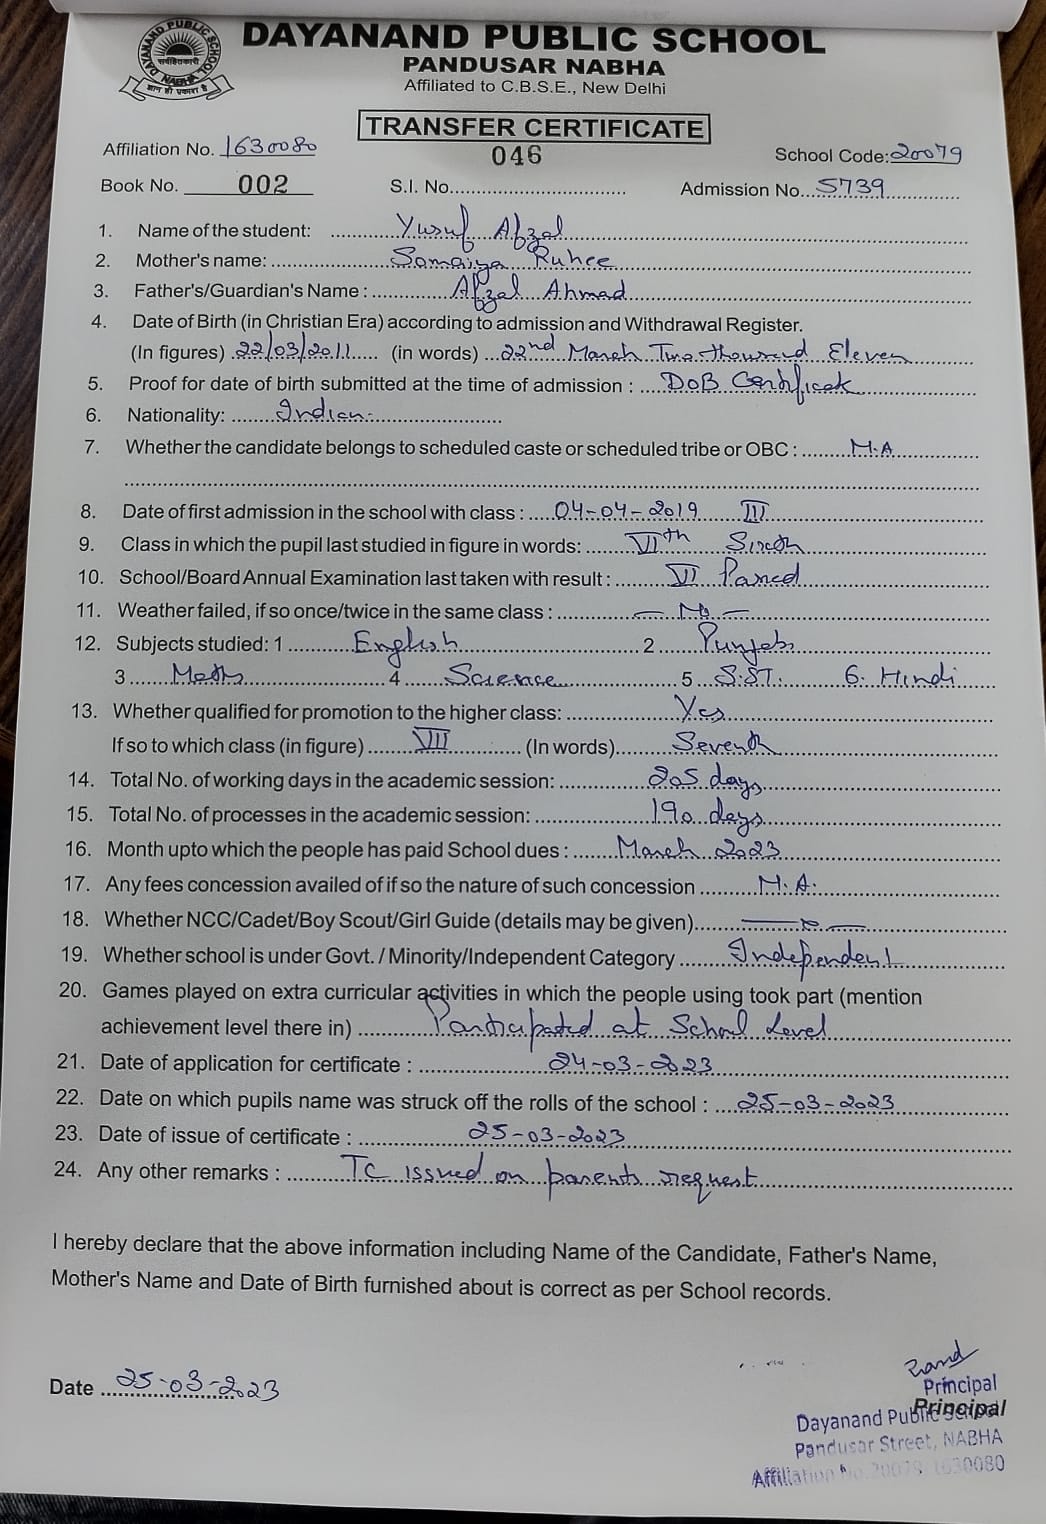 DAYANAND PUBLIC SCHOOL
DAYANAND PUBLIC SCHOOL
PANDUSAR NABHA
Affiliated to C.B.S.E., New Delhi
NABHA
TRANSFER CERTIFICATE
Affiliation No. 1630080
046
School Code: 20079
Book No. 002
S.I. No.
Admission No. 5739
1. Name of the student: Yusuf Afzal
2. Mother's name: Somaiya Ruhee
3. Father's/Guardian's Name : Afzal Ahmad
4. Date of Birth (in Christian Era) according to admission and Withdrawal Register.
(In figures) 22/03/2011 (in words) 22nd March Two thousand Eleven
5. Proof for date of birth submitted at the time of admission : DoB Certificate
6. Nationality: Indian
7. Whether the candidate belongs to scheduled caste or scheduled tribe or OBC : N.A
8. Date of first admission in the school with class : 04-04-2019 III
9. Class in which the pupil last studied in figure in words: VIth Sixth
10. School/Board Annual Examination last taken with result : VI Passed
11. Weather failed, if so once/twice in the same class : — No —
12. Subjects studied: 1 English 2 Punjabi
3 Math 4 Science 5 S.ST. 6. Hindi
13. Whether qualified for promotion to the higher class: Yes
If so to which class (in figure) VII (In words) Seventh
14. Total No. of working days in the academic session: 205 days
15. Total No. of processes in the academic session: 190 days
16. Month upto which the people has paid School dues : March 2023
17. Any fees concession availed of if so the nature of such concession N.A.
18. Whether NCC/Cadet/Boy Scout/Girl Guide (details may be given)
19. Whether school is under Govt. / Minority/Independent Category Independent
20. Games played on extra curricular activities in which the people using took part (mention
achievement level there in) Participated at School Level
21. Date of application for certificate : 24-03-2023
22. Date on which pupils name was struck off the rolls of the school : 25-03-2023
23. Date of issue of certificate : 25-03-2023
24. Any other remarks : TC issued on parents request
I hereby declare that the above information including Name of the Candidate, Father's Name,
Mother's Name and Date of Birth furnished about is correct as per School records.
Date 25-03-2023
Principal
Principal
Dayanand Public School
Pandusar Street, NABHA
Affiliation No. 20079 1630080